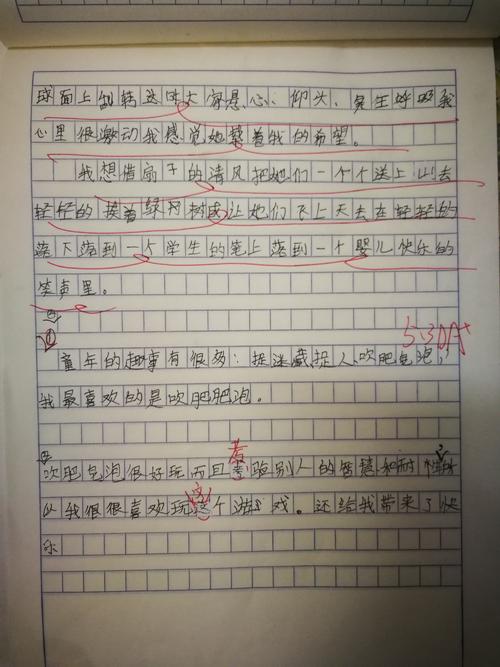 球面上到转这时大家悬心、仰头、兔生呼吸我
心里很激动我感觉她载着我的希望。
我想借扇子的清风把她们一个个送上山去
轻轻的挨着绿树成让她们飞上天去在轻轻的
落下落到一个学生的笔上落到一个婴儿快乐的
笑声里。
①
5.30 A+
童年的趣事有很多:捉迷藏、捉人、吹肥皂泡,
我最喜欢的是吹肥肥泡。
考
吹肥皂泡很好玩而且验别人的智慧和耐
以我很很喜欢玩这个游戏。还给我带来了快
乐